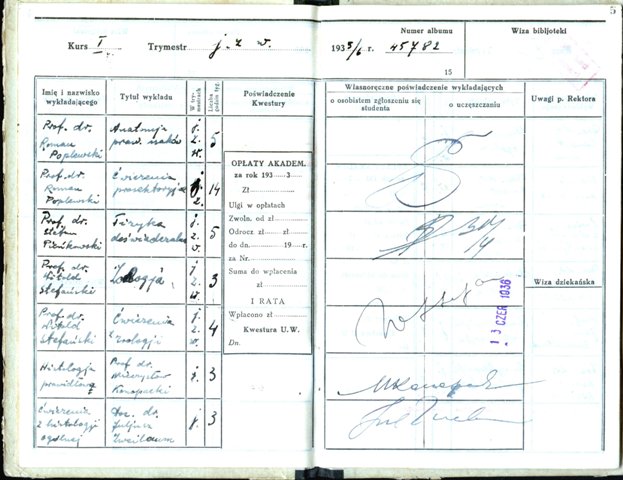 5
Kurs I Trymestr j. z w. 1935/6 r. Numer albumu 45782 Wiza bibljoteki
15
Imię i nazwisko wykładającego
Tytuł wykładu
W trymestrach
Liczba godzin tyg.
Poświadczenie Kwestury
Własnoręczne poświadczenie wykładających
o osobistem zgłoszeniu się studenta
o uczęszczaniu
Uwagi p. Rektora
Prof. dr.
Roman
Poplewski
Anatomja
praw. ssaków
j.
z.
w.
5
Prof. dr.
Roman
Poplewski
Ćwiczenia
prosektoryjne
j.
z.
14
Prof. dr.
Stefan
Pieńkowski
Fizyka
doświadczalna
j.
z.
w.
5
Prof. dr.
Witold
Stefański
Zoologja
j.
z.
w.
3
Prof. dr.
Witold
Stefański
Ćwiczenia
z zoologji
j.
z.
w.
4
Histologja
prawidłowa
Prof. dr.
Mieczysław
Konopacki
j.
3
Ćwiczenia
z histologji
ogólnej
Doc. dr.
Juljusz
Zweibaum
j.
3
OPŁATY AKADEM.
za rok 193 3
Zł
Ulgi w opłatach
Zwoln. od zł
Odrocz zł zł
do dn. 19 r.
za Nr.
Suma do wpłacenia
zł
I RATA
Wpłacono zł
Kwestura U.W.
Dn.
13 CZER 1936
Wiza dziekańska